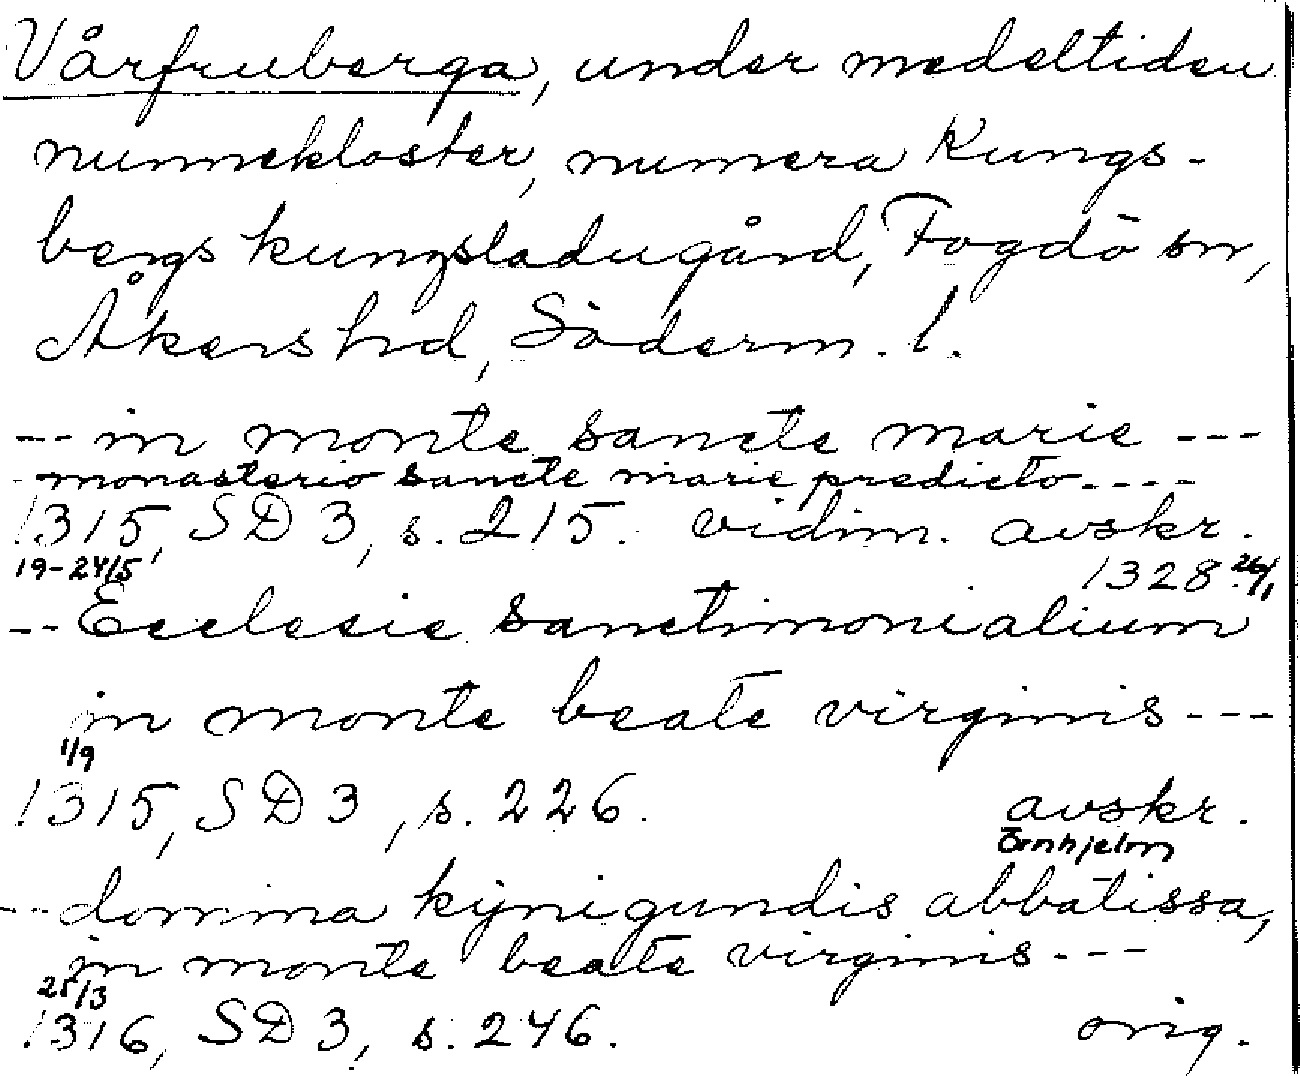 Vårfruberga, under medeltiden
nunnekloster, numera Kungs-
bergs kungsladugård, Fogdö sn,
Åkers hd, Söderm. l.
--- in monte sancte marie ---
- monasterio sancte marie predicto ----
1315, SD 3, s. 215. vidim. avskr.
19-24/5 1328 26/1
-- Ecclesie sanctimonialium
in monte beate virginis ---
1/9
1315, SD 3, s. 226. avskr.
Örnhjelm
--- domina kÿnigundis abbatissa,
in monte beate virginis ---
25/3
1316, SD 3, s. 246. orig.